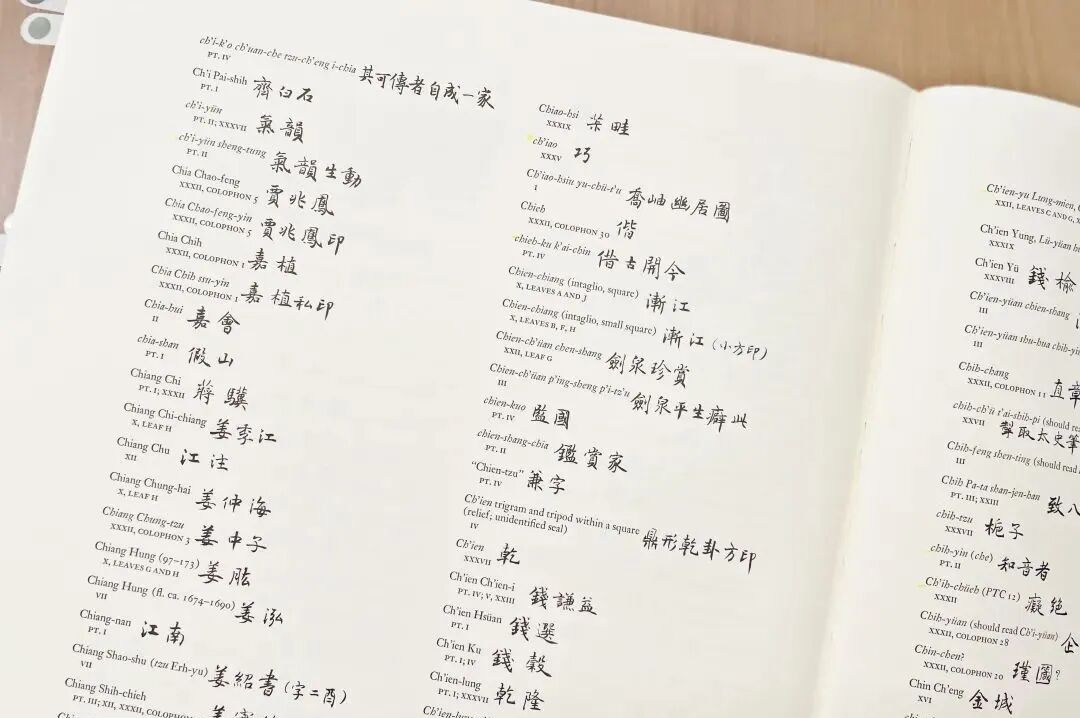 ch'i-k'o ch'uan-che tzu-ch'eng i-chia 其可傳者自成一家
PT. IV
Ch'i Pai-shih 齊白石
PT. I
ch'i-yün 氣韻
PT. II; XXXVII
ch'i-yün sheng-tung 氣韻生動
PT. II
Chia Chao-feng 賈兆鳳
XXXII, COLOPHON 5
Chia Chao-feng-yin 賈兆鳳印
XXXII, COLOPHON 5
Chia Chih 嘉植
XXXII, COLOPHON 1
Chia Chih ssu-yin 嘉植私印
XXXII, COLOPHON 1
Chia-hui 嘉會
II
chia-shan 假山
PT. I
Chiang Chi 蔣驥
PT. I; XXXII
Chiang Chi-chiang 姜季江
X, LEAF H
Chiang Chu 江注
XII
Chiang Chung-hai 姜仲海
X, LEAF H
Chiang Chung-tzu 姜中子
XXXII, COLOPHON 3
Chiang Hung (97–173) 姜肱
X, LEAVES G AND H
Chiang Hung (fl. ca. 1674–1690) 姜泓
VII
Chiang-nan 江南
PT. I
Chiang Shao-shu (tzu Erh-yu) 姜紹書(字二酉)
VII
Chiang Shih-chieh
PT. III; XII, XXXII, COLOPHON
Chiao-hsi
XXXIX
ch'iao 巧
XXXV
Ch'iao-hsiu yu-chü-t'u 喬岫幽居圖
I
Chieh 偕
XXXII, COLOPHON 30
chieh-ku k'ai-chin 借古開今
PT. IV
Chien-chiang (intaglio, square) 漸江
X, LEAVES A AND J
Chien-chiang (intaglio, small square) 漸江(小方印)
X, LEAVES B, F, H
Chien-ch'üan chen-shang 劍泉珍賞
XXII, LEAF G
Chien-ch'üan p'ing-sheng p'i-tz'u 劍泉平生癖此
III
chien-kuo 監國
PT. IV
chien-shang-chia 鑑賞家
PT. II
"Chien-tzu" 兼字
PT. IV
Ch'ien trigram and tripod within a square
(relief; unidentified seal) 鼎形乾卦方印
IV
Ch'ien 乾
XXXVII
Ch'ien Ch'ien-i 錢謙益
PT. IV; V, XXIII
Ch'ien Hsüan 錢選
PT. I
Ch'ien Ku 錢穀
PT. I; IV
Ch'ien-lung 乾隆
PT. I; XXXVII
Ch'ien-yu Lung-mien, (
XXII, LEAVES C AND G, X
Ch'ien Yung, Lü-yüan
XXXIX
Ch'ien Yü 錢榆
XXXVIII
Ch'ien-yüan chien-shang
III
Ch'ien-yüan shu-hua chih-yin
III
Chih-chang 直章
XXXII, COLOPHON 11
chih-ch'ü t'ai-shih-pi (should read
XXVII
取太史筆
Chih-feng shen-ting (should read
III
Chih Pa-ta shan-jen-han 致八
PT. III; XXIII
chih-tzu 梔子
XXXVII
chih-yin (che) 知音者
PT. II
Ch'ih-chüeh (PTC 12) 癡絕
XXXII
Chih-yüan (should read Ch'i-yüan) 企
XXXII, COLOPHON 28
Chin-chen?
XXXII, COLOPHON 20
Chin Ch'eng 金城
XVI